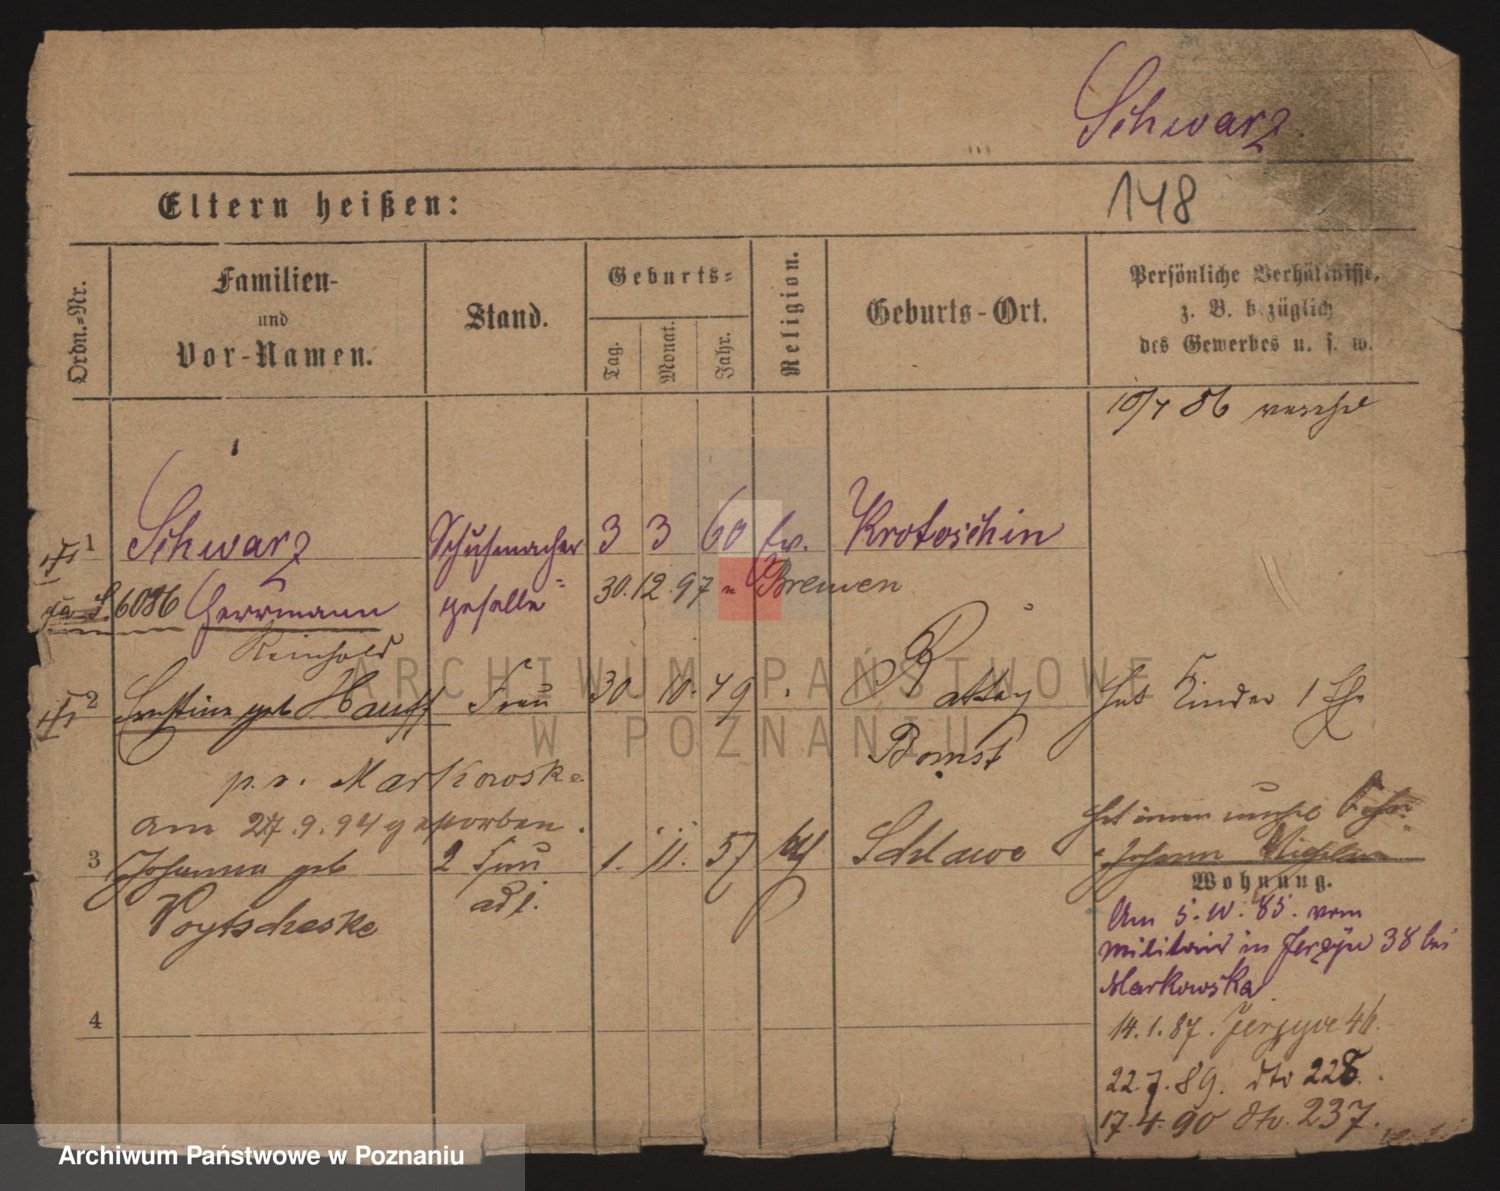 Schwarz.
148
Eltern heißen:
Ordn.-Nr.
Familien-
und
Vor-Namen.
Stand.
Geburts-
Tag.
Monat.
Jahr.
Religion.
Geburts-Ort.
Persönliche Verhältnisse,
z. B. bezüglich
des Gewerbes u. s. w.
10/7 86
1 Schwarz Schuhmacher 3 3 60 ev. Krotoschin
6086 Herrmann geselle 30.12.97 n Bremen
Reinhold
2 Ernstine geb Hauff Frau 30. 10. 49 Rattay hat Kinder 1 Ehe
Bomst
p. r. Markowsk
am 27.9.94 gestorben.
3 Johanna geb 2 Frau 1. 11. 57 kth Schlawe
Voytscheske adl.
Wohnung.
Am 5. 10. 85. vom
Militair in Jerzyce 38 bei
Markowska.
4
14.1.87. Jerzyce 46.
22.7.89. dto 228.
17.4.90 dto. 237.
ARCHIWUM PAŃSTWOWE
W POZNANIU
Archiwum Państwowe w Poznaniu